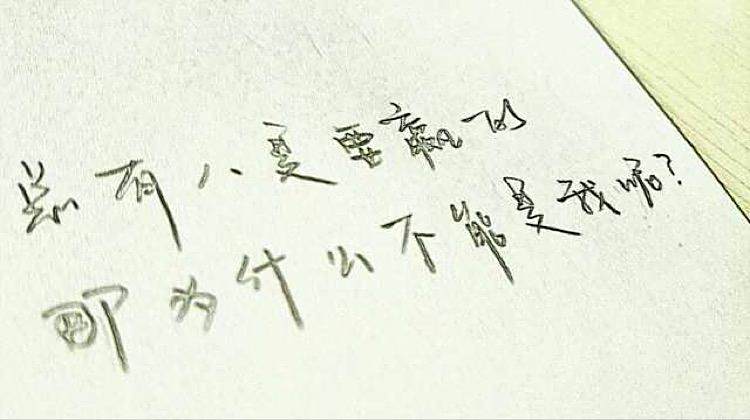 总有人是要赢的
那为什么不能是我呢?